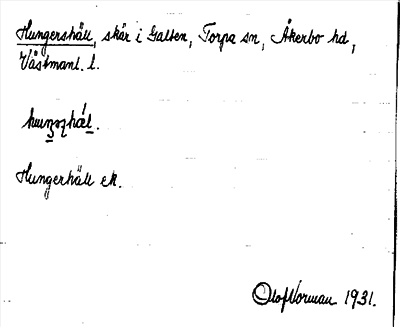 Hungershäll, skär i Galten, Torpa sn, Åkerbo hd,
Västmanl. l.
Hungerhäll ek.
Olof Norman 1931.